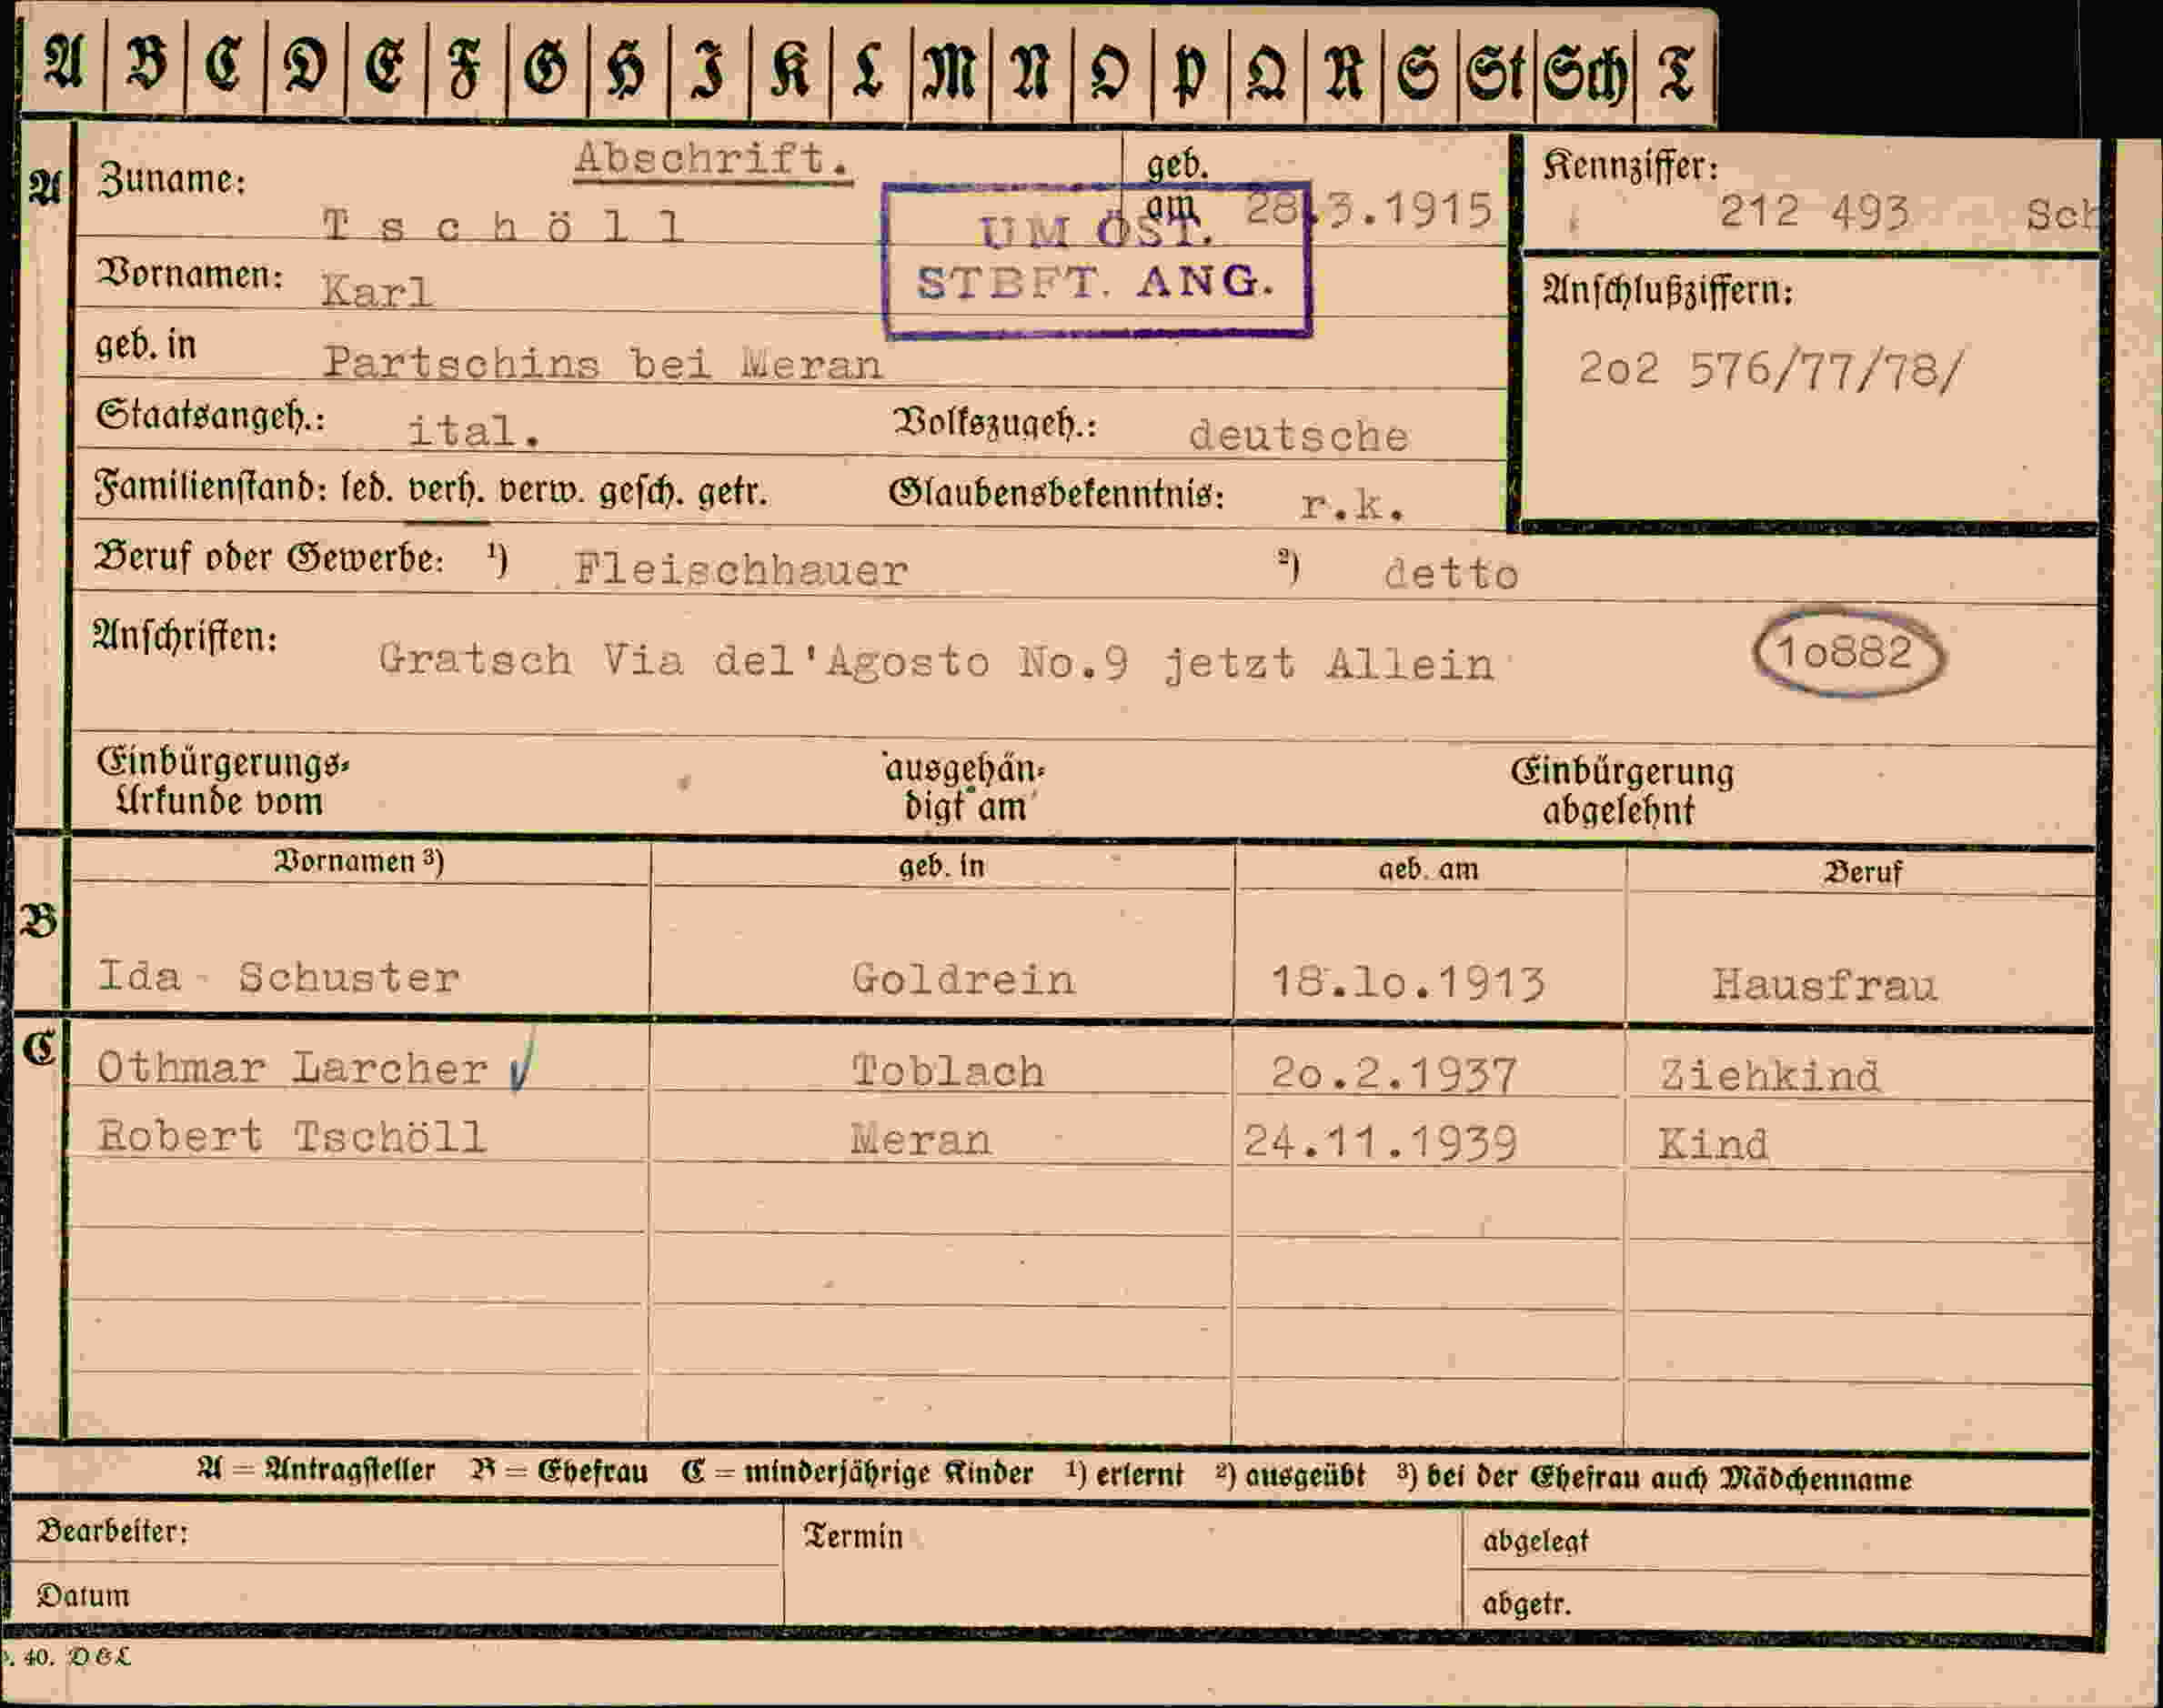 A B C D E F G H I K L M N O P Q R S St Sch T
A Zuname: Abschrift. geb. am 28.3.1915 Kennziffer:
Tschöll 212 493 Sch
UM ÖST.
STBFT. ANG.
Vornamen: Karl Anschlußziffern:
geb. in Partschins bei Meran 2o2 576/77/78/
Staatsangeh.: ital. Volkszugeh.: deutsche
Familienstand: led. verh. verw. gesch. getr. Glaubensbekenntnis: r.k.
Beruf oder Gewerbe: 1) Fleischhauer 2) detto
Anschriften: Gratsch Via del'Agosto No.9 jetzt Allein 1o882
Einbürgerungs- ausgehän- Einbürgerung
Urkunde vom digt am abgelehnt
Vornamen 3) geb. in geb. am Beruf
B
Ida - Schuster Goldrein 18.1o.1913 Hausfrau
C Othmar Larcher √ Toblach 2o.2.1937 Ziehkind
Robert Tschöll Meran 24.11.1939 Kind
A = Antragsteller B = Ehefrau C = minderjährige Kinder 1) erlernt 2) ausgeübt 3) bei der Ehefrau auch Mädchenname
Bearbeiter: Termin abgelegt
Datum abgetr.
40. DGL